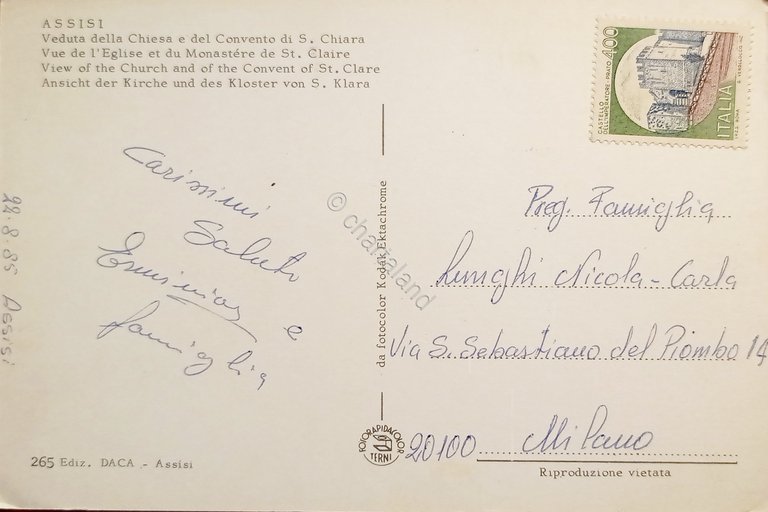 ASSISI
Veduta della Chiesa e del Convento di S. Chiara
Vue de l'Eglise et du Monastére de St. Claire
View of the Church and of the Convent of St. Clare
Ansicht der Kirche und des Kloster von S. Klara
400
CASTELLO
DELL'IMPERATORE-PRATO
ITALIA
Carissimi
Saluti
Erminia e
famiglia
22.8.85 Assisi
© charialand
da fotocolor Kodak Ektachrome
Preg. Famiglia
Lunghi Nicola-Carla
Via S. Sebastiano del Piombo 14
20100 Milano
FOTORAPIDACOLOR
TERNI
265 Ediz. DACA - Assisi
Riproduzione vietata